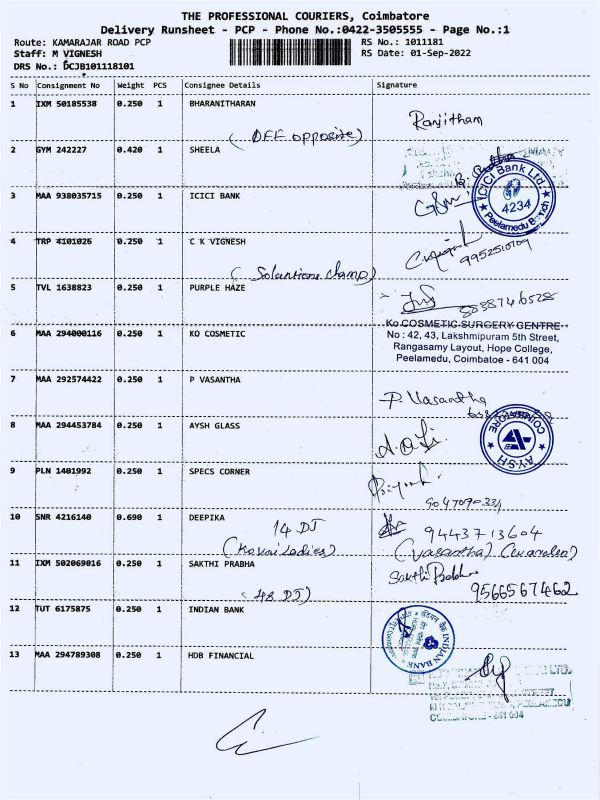 THE PROFESSIONAL COURIERS, Coimbatore
Delivery Runsheet - PCP - Phone No.:0422-3505555 - Page No.:1
Route: KAMARAJAR ROAD PCP RS No.: 1011181
Staff: M VIGNESH RS Date: 01-Sep-2022
DRS No.: DCJB101118101
S No Consignment No Weight PCS Consignee Details Signature
1 IXM 50185538 0.250 1 BHARANITHARAN
Ranjitham
(OFF opposite)
2 GYM 242227 0.420 1 SHEELA
3 MAA 938035715 0.250 1 ICICI BANK
ICICI Bank Ltd.
4234
Peelamedu Branch
4 TRP 4101026 0.250 1 C K VIGNESH
9952510109
5 TVL 1638823 0.250 1 PURPLE HAZE
8838746528
6 MAA 294000116 0.250 1 KO COSMETIC
Ko COSMETIC SURGERY CENTRE
No : 42, 43, Lakshmipuram 5th Street,
Rangasamy Layout, Hope College,
Peelamedu, Coimbatoe - 641 004
7 MAA 292574422 0.250 1 P VASANTHA
P. Vasantha
8 MAA 294453784 0.250 1 AYSH GLASS
COIMBATORE
AYSH
9 PLN 1401992 0.250 1 SPECS CORNER
9047090334
10 SNR 4216140 0.690 1 DEEPIKA
14 DJ
9443713604
(Kovai Ladies)
11 IXM 502069016 0.250 1 SAKTHI PRABHA
Sakthi Prabha
9566567462
(48 DJ)
12 TUT 6175875 0.250 1 INDIAN BANK
INDIAN BANK
13 MAA 294789308 0.250 1 HDB FINANCIAL
COIMBATORE - 641 004